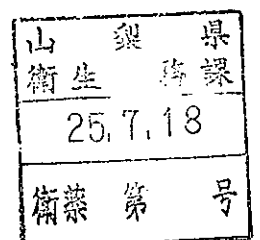 山梨県
衛生務課
25.7.18
衛薬第 号